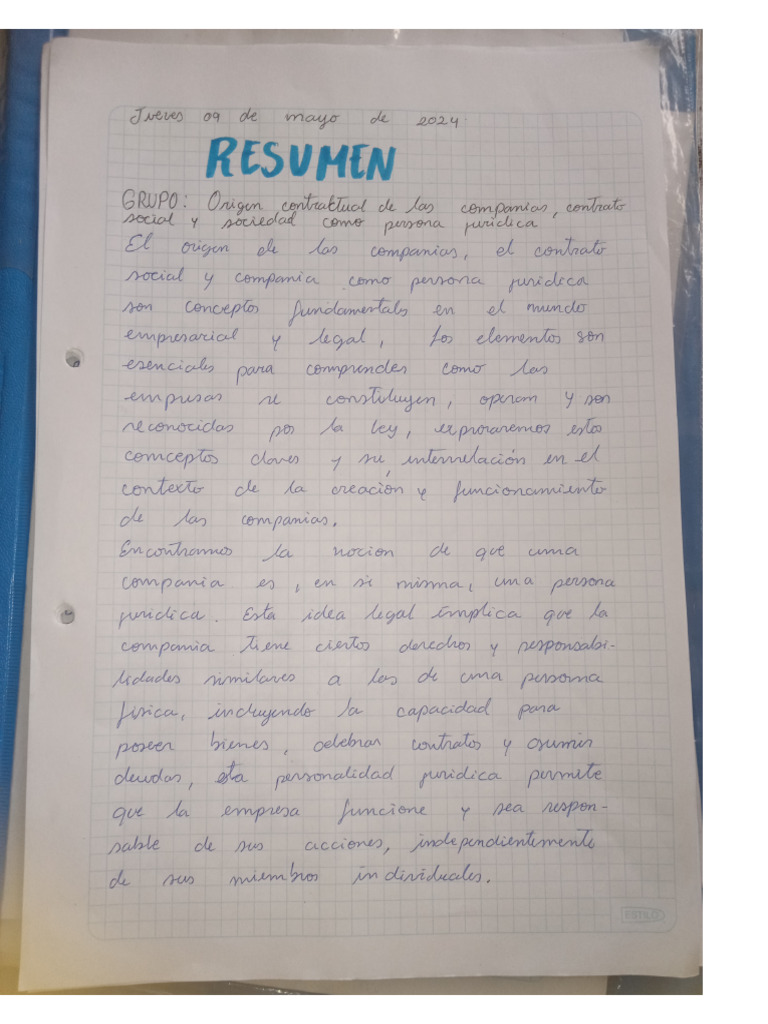 Jueves 09 de mayo de 2024.
RESUMEN
GRUPO: Origen contraktual de las companias, contrato
social y sociedad como persona juridica
El origen de las companias, el contrato
social y compania como persona juridica
son conceptos fundamentals en el mundo
empresarial y legal, Los elementos son
esenciales para comprendes como las
empresas se constituyen, operan y son
reconocidas por la ley, exproraremos estos
conceptos claves y su interrelación en el
contexto de la creación y funcionamiento
de las companias.
Encontramos la nocion de que una
compania es, en si misma, una persona
juridica. Esta idea legal implica que la
compania tiene ciertos derechos y responsabi-
lidades similares a las de una persona
física, incluyendo la capacidad para
poseer bienes, celebrar contratos y asumir
deudas, esta personalidad juridica permite
que la empresa funcione y sea respon-
sable de sus acciones, independientemente
de sus miembros individuales.
ESTILO